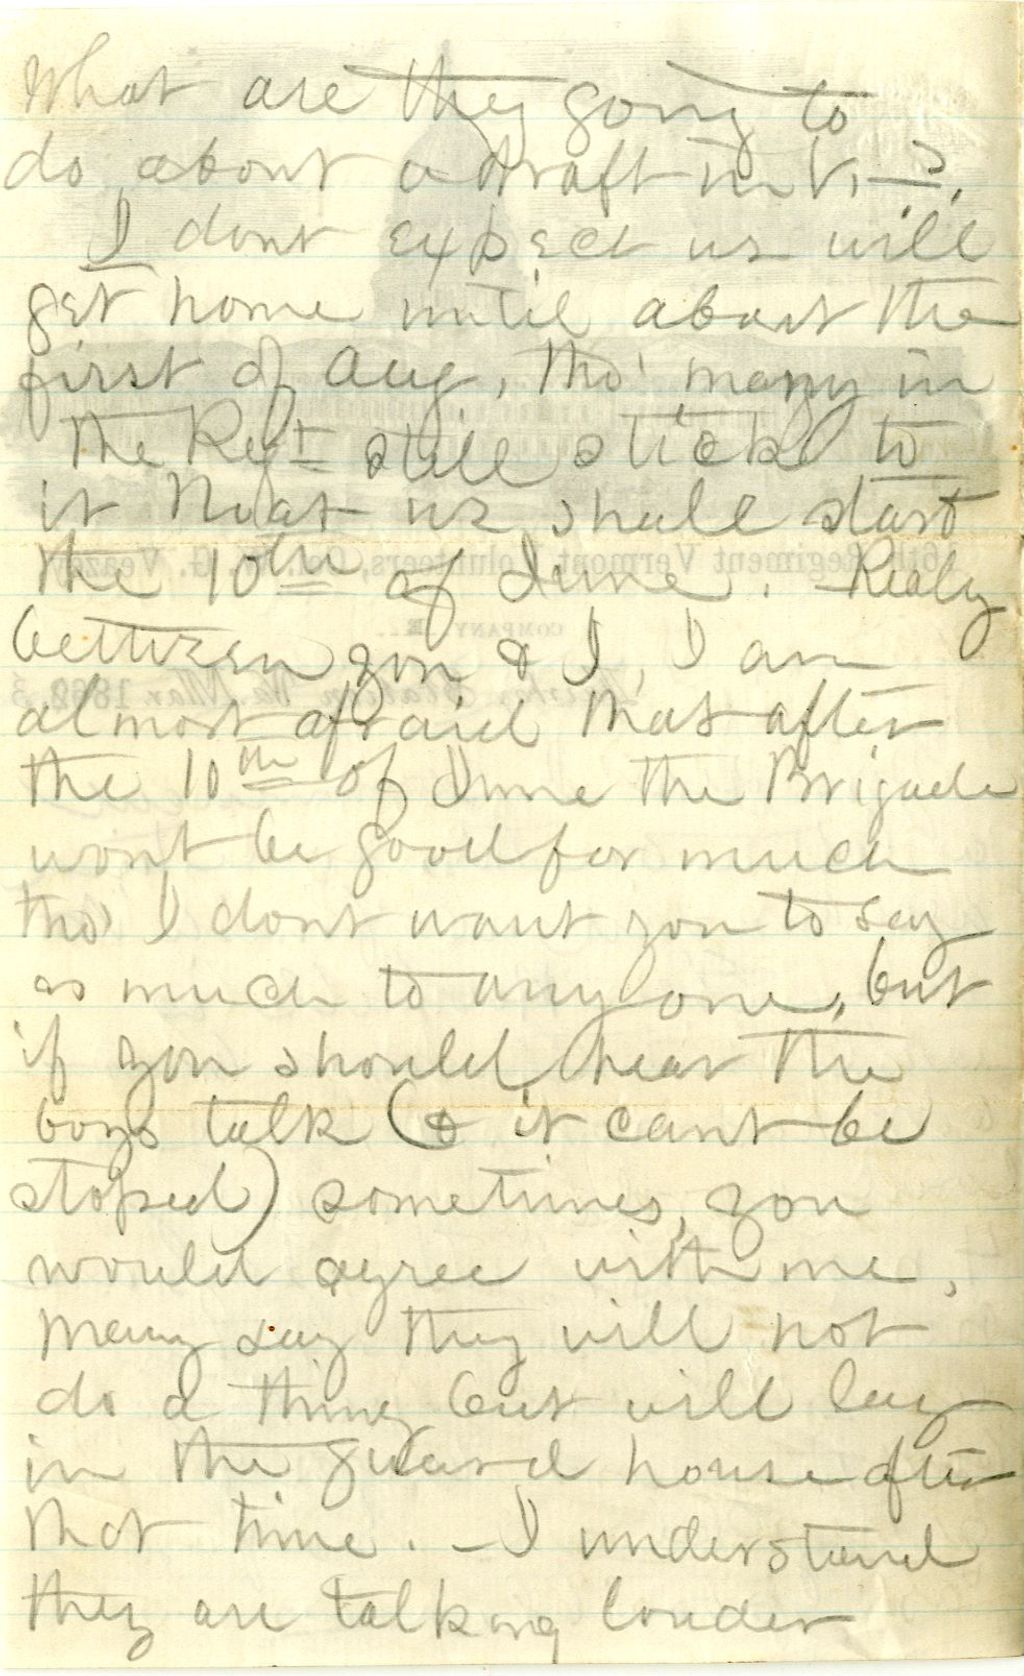 What are they going to
do about a draft in Vt—?
I dont expect we will
get home until about the
first of Aug, tho' many in
the Regt still stick to
it that we shall start
the 10th of June. Realy
between you & I, I am
almost afraid that after
the 10th of June the Brigade
wont be good for much
tho' I dont want you to say
as much to any one, but
if you should hear the
boys talk (& it cant be
stoped) sometimes, you
would agree with me,
Many say they will not
do a thing but will lay
in the guard house after
that time. – I understand
they are talking louder
16th Regiment Vermont Volunteers, Col. W. G. Veazey
COMPANY